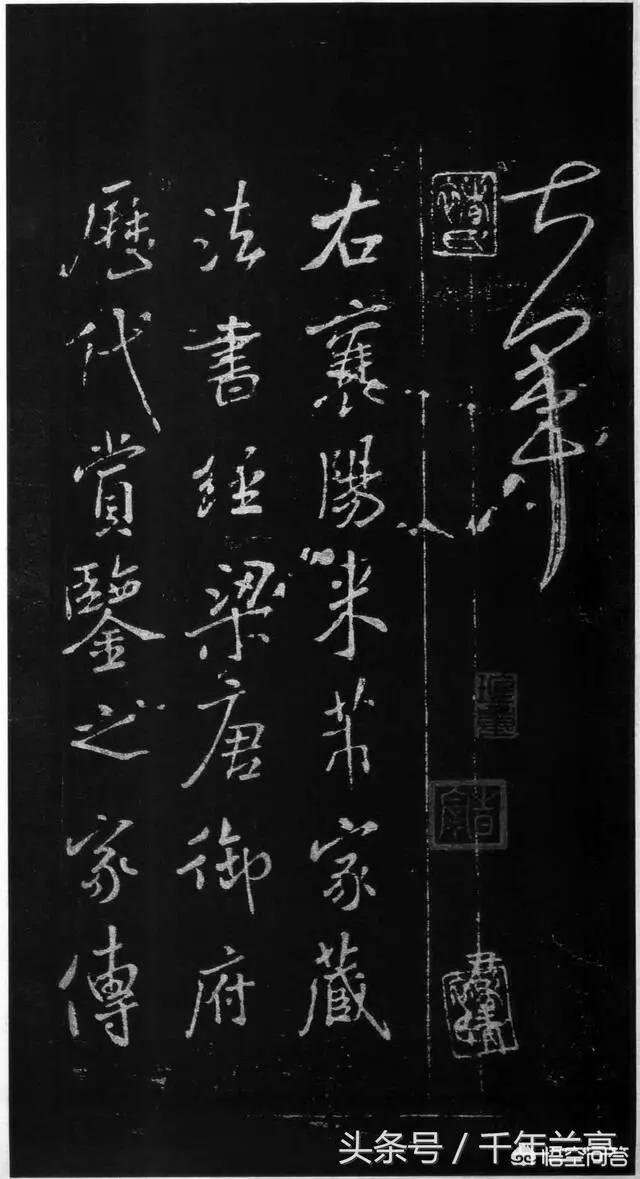 右襄陽米芾家藏
法書經梁唐御府
歷代賞鑒之家傳
头条号 / 千年兰亭
悟空问答